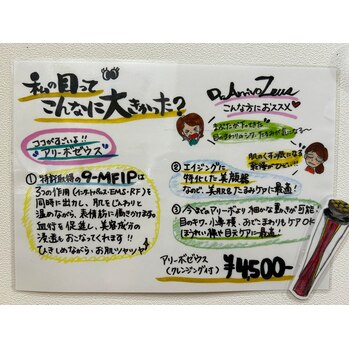 私の目って
こんなに大きかった?
Dr.ArrivoZeus
こんな方におススメ♡
ココがすごいよ!!
アリーボゼウス
① 特許取得の9-MFIPは
3つの作用(インナーパルス・EMS・RF)を
同時に出力し、肌をじんわりと
温めながら、表情筋に働きかけます。
血行を促進し、美容成分の
浸透もおこなってくれます!!
ひきしめながら、お肌ツヤツヤ
② エイジングに
特化した美顔器
なので、美肌&たるみケアに最適!
③ 今までのアリーボより細かな動きが可能
目のキワ・小鼻横、あごこまわりもケアOK
ほうれい線や目元ケアに最適!
アリーボゼウス
(クレンジング付)
¥4,500-